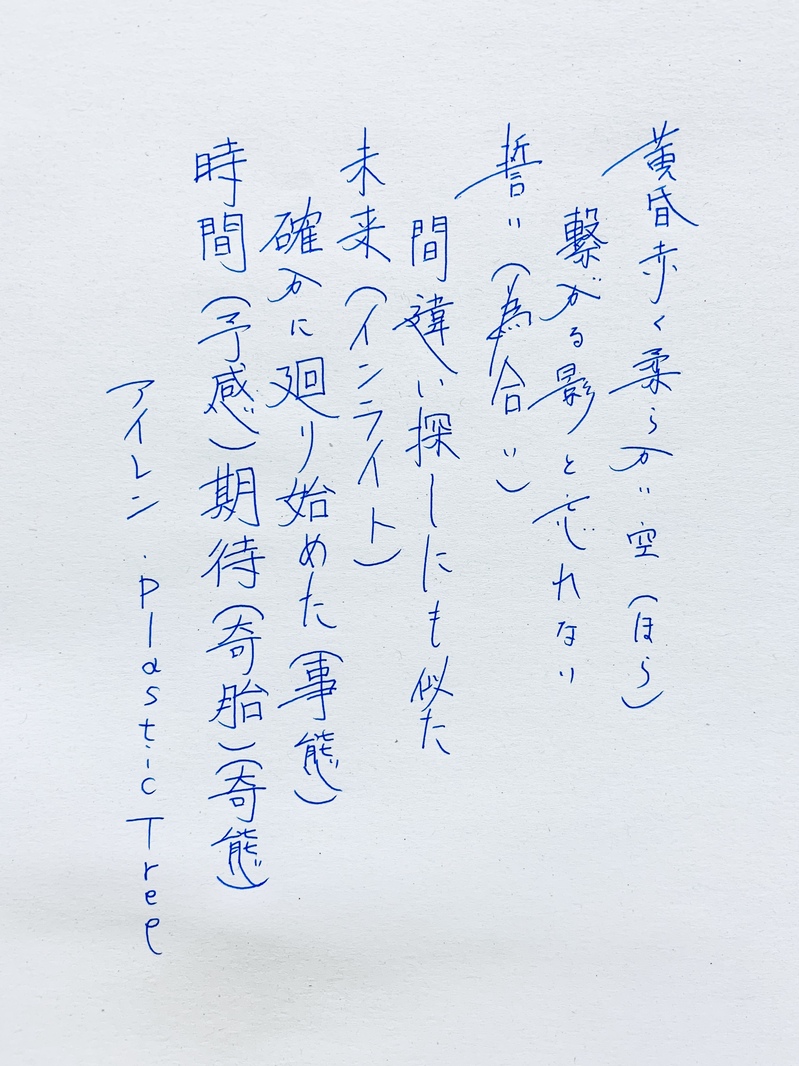 黄昏赤く柔らかい空（ほら）
繋がる影と忘れない
誓い（為合い）
間違い探しにも似た
未来（インライト）
確かに廻り始めた（事態）
時間（予感）期待（奇胎）（奇態）
アイレン．plastic Tree